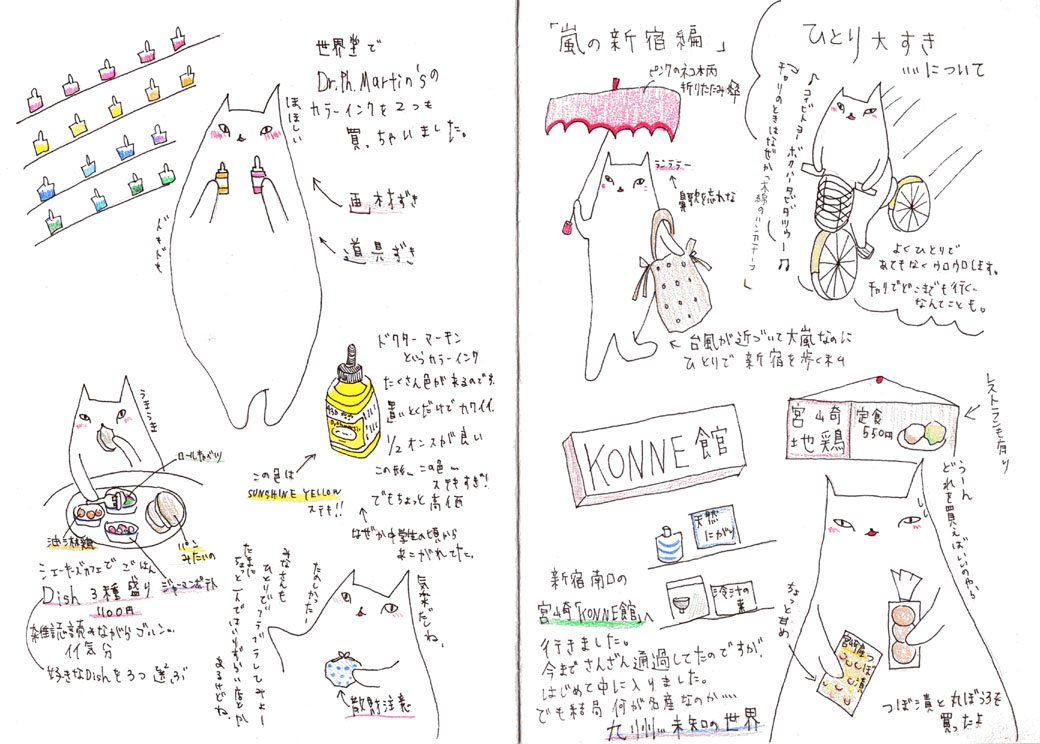 「嵐の新宿編」
ひとり大すき
について
ピンクのネコ柄
折りたたみ傘
ランララー
鼻歌を忘れな
台風が近づいて大嵐なのに
ひとりで新宿を歩く
♪コイビトヨーボクハータビダツゥー
チャリのときはなぜか
木綿のハンカチーフ
よくひとりで
あてもなくウロウロします。
チャリでどこまでも行く、
なんてことも。
KONNE館
宮崎
地鶏
定食
550円
レストランも有り
天然
にがり
冷汁の素
うーん
どれを買えばいいのやら
ちょっと甘め
宮崎産つぼ漬
つぼ漬と丸ぼうろを
買ったよ
新宿南口の
宮崎「KONNE館」へ
行きました。
今までさんざん通過してたのですが、
はじめて中に入りました。
でも結局何が名産なのか……
九州…未知の世界
世界堂で
Dr.Ph.Martin'sの
カラーインクを2つも
買っちゃいました。
ほほしい
画材ずき
道具ずき
ドクターマーチン
というカラーインク
たくさん色が有るのですが
置いとくだけでカワイイ。
1/2オンスが良い
この形、この色…
ステキすぎ!
でもちょっと高価
この色は
SUNSHINE YELLOW
ステキ!!
なぜか中学生の頃から
あこがれてた。
うきうき
ロールキャベツ
油淋鶏
パン
みたいの
ジャーマンポテト
シェーキーズカフェでごはん
Dish 3種盛り
1100円
雑誌読みながらゴハン。
イイ気分
好きなDishを3つ選ぶ
たのしかったー
みなさんも
ひとりでブラブラしてみよー
たまに
気楽だしね。
散財注意